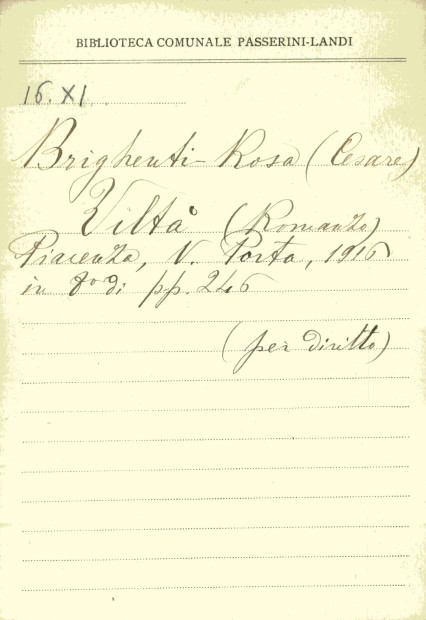 BIBLIOTECA COMUNALE PASSERINI-LANDI
16. XI
Brighenti-Rosa (Cesare)
Viltà (Romanzo)
Piacenza, V. Porta, 1916
in 8º di pp. 246
(per diritto)